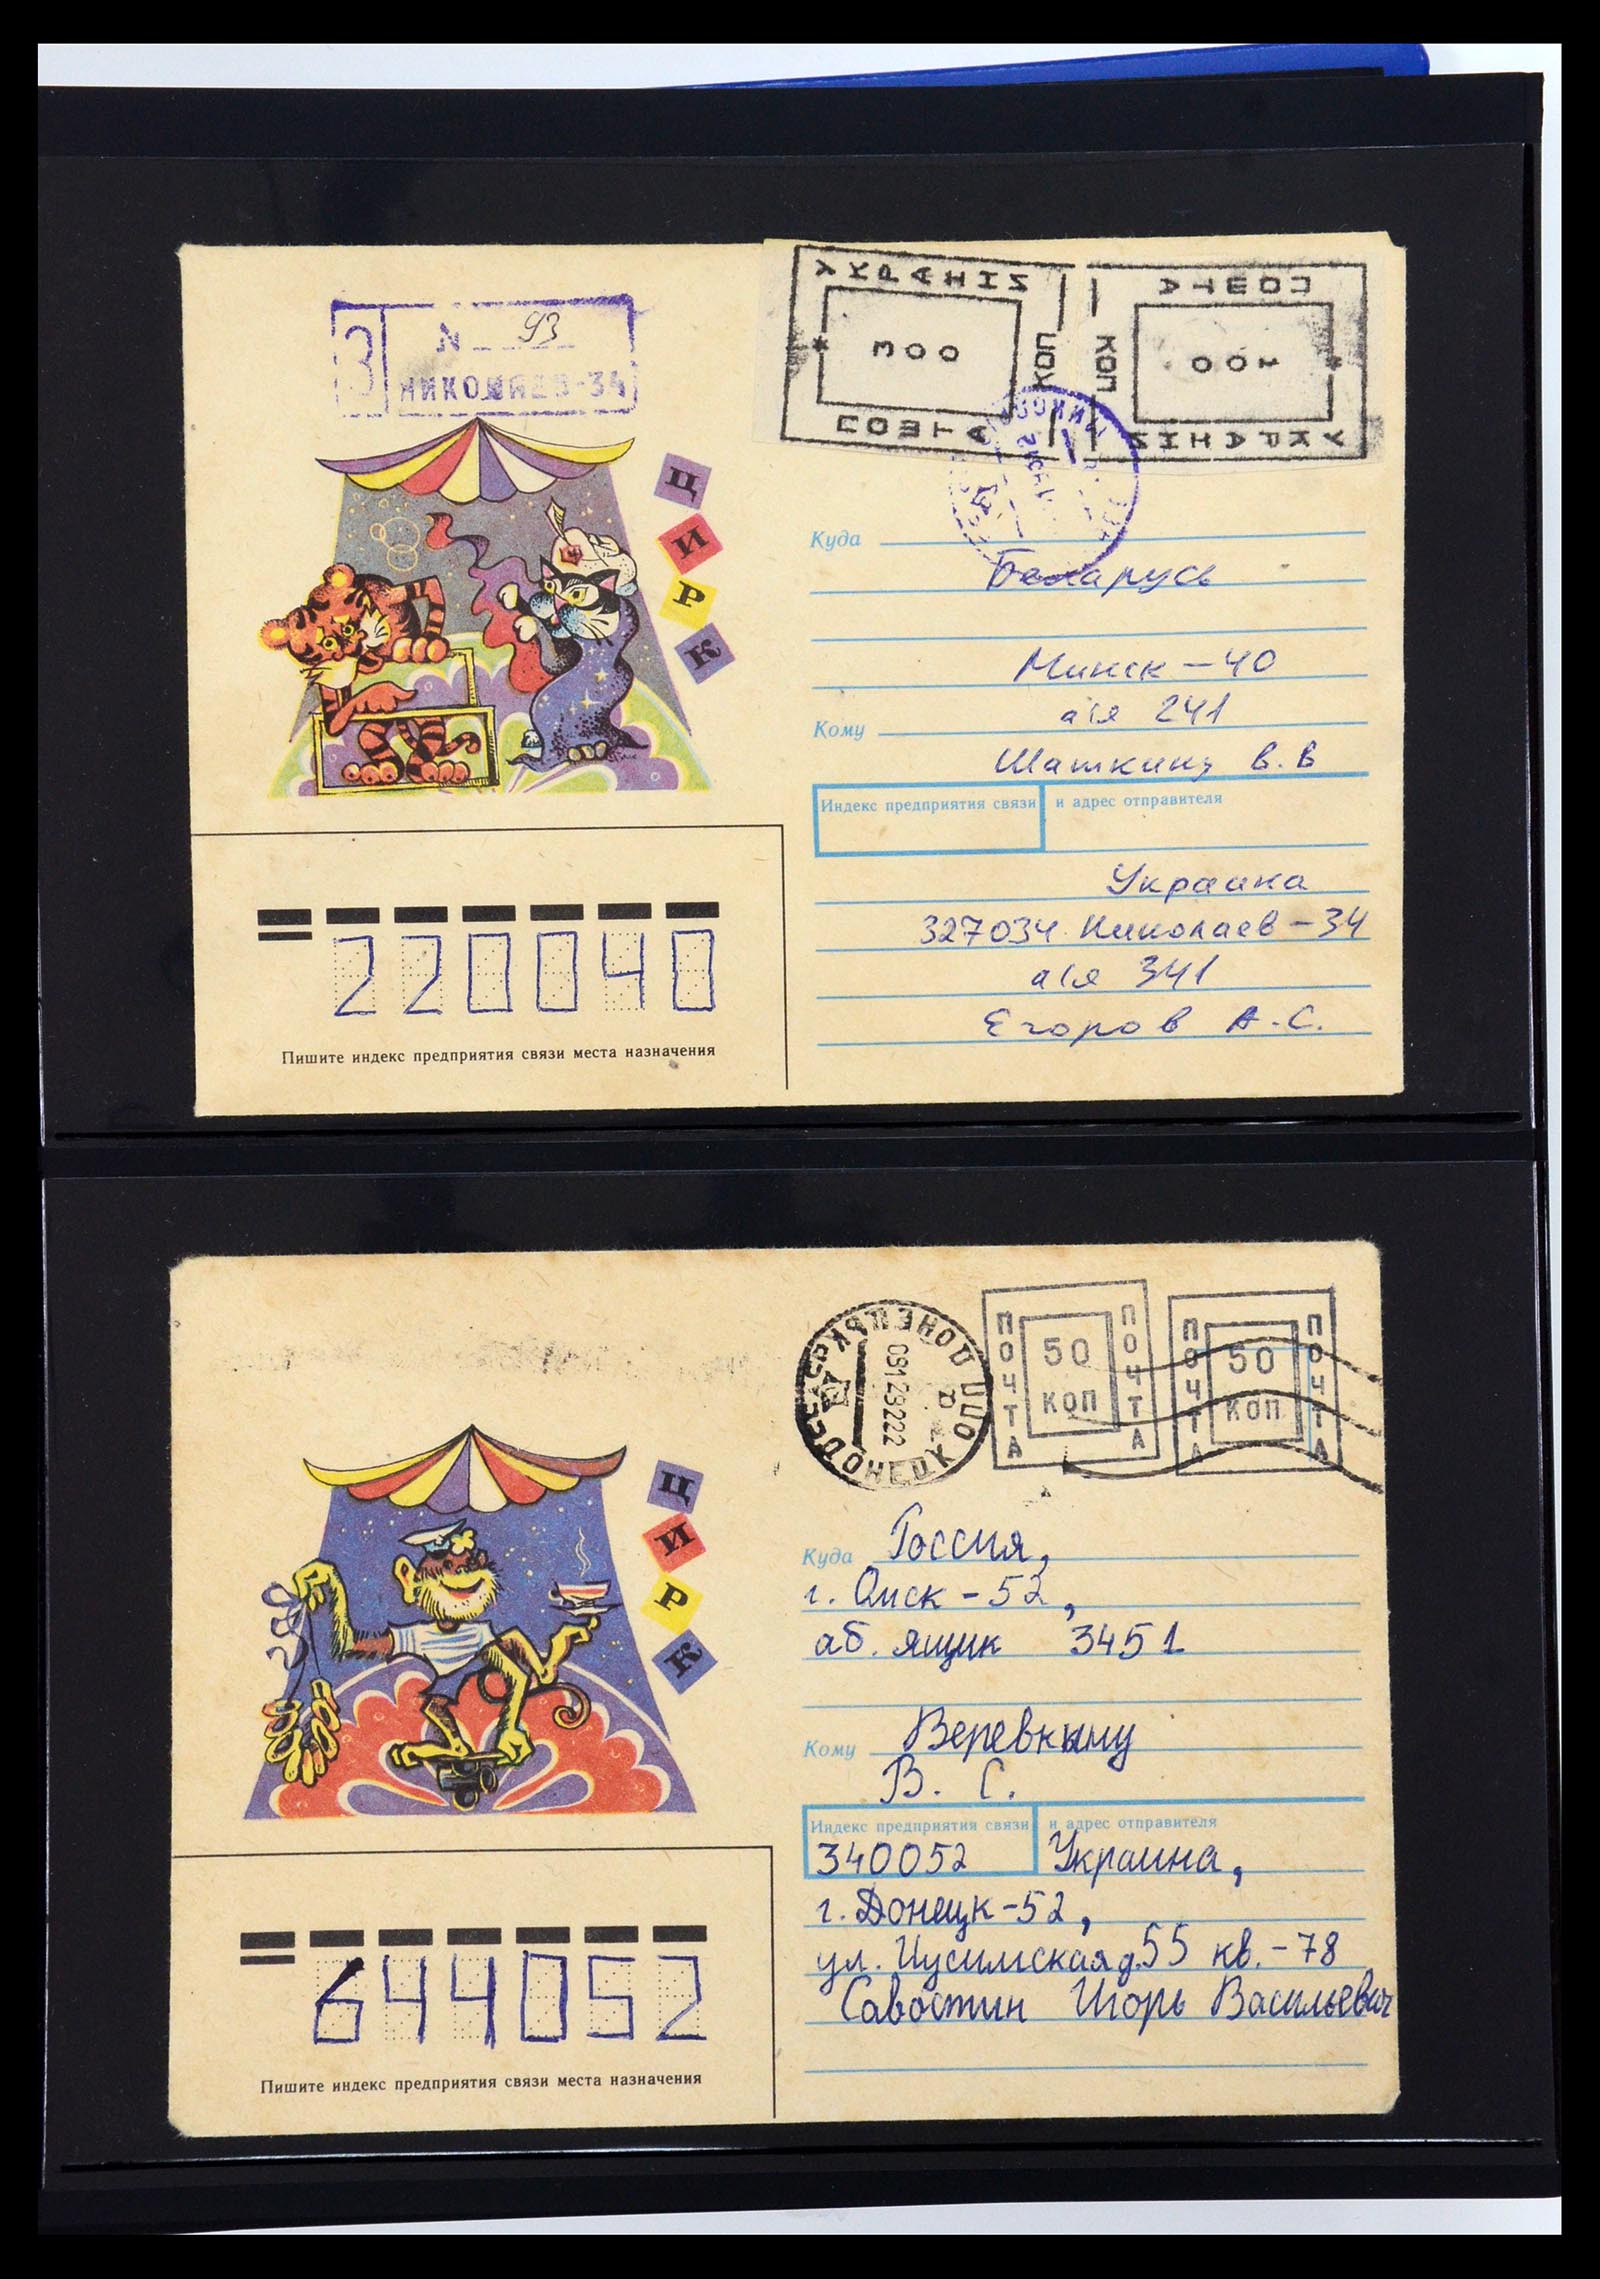 З
N 93
НИКОЛАЕВ-34
УКРАИНИ
300
КОП
ПОШТА
ПОШТА
100
КОП
УКРАИНИ
Ц
И
Р
К
Куда
Беларусь
Минск - 40
а/я 241
Кому
Шаткину В.В
Индекс предприятия связи
и адрес отправителя
Украина
327034 Николаев - 34
а/я 341
Егоров А.С.
220040
Пишите индекс предприятия связи места назначения
ДОНЕЦК
091292 22
ПОЧТА
50
КОП
ПОЧТА
ПОЧТА
50
КОП
ПОЧТА
Ц
И
Р
К
Куда Россия,
г. Омск - 52,
аб. ящик 3451
Кому Веревкину
В. С.
Индекс предприятия связи
и адрес отправителя
340052 Украина,
г. Донецк - 52,
ул. Цусимская д.55 кв. - 78
Савостин Игорь Васильевич
644052
Пишите индекс предприятия связи места назначения